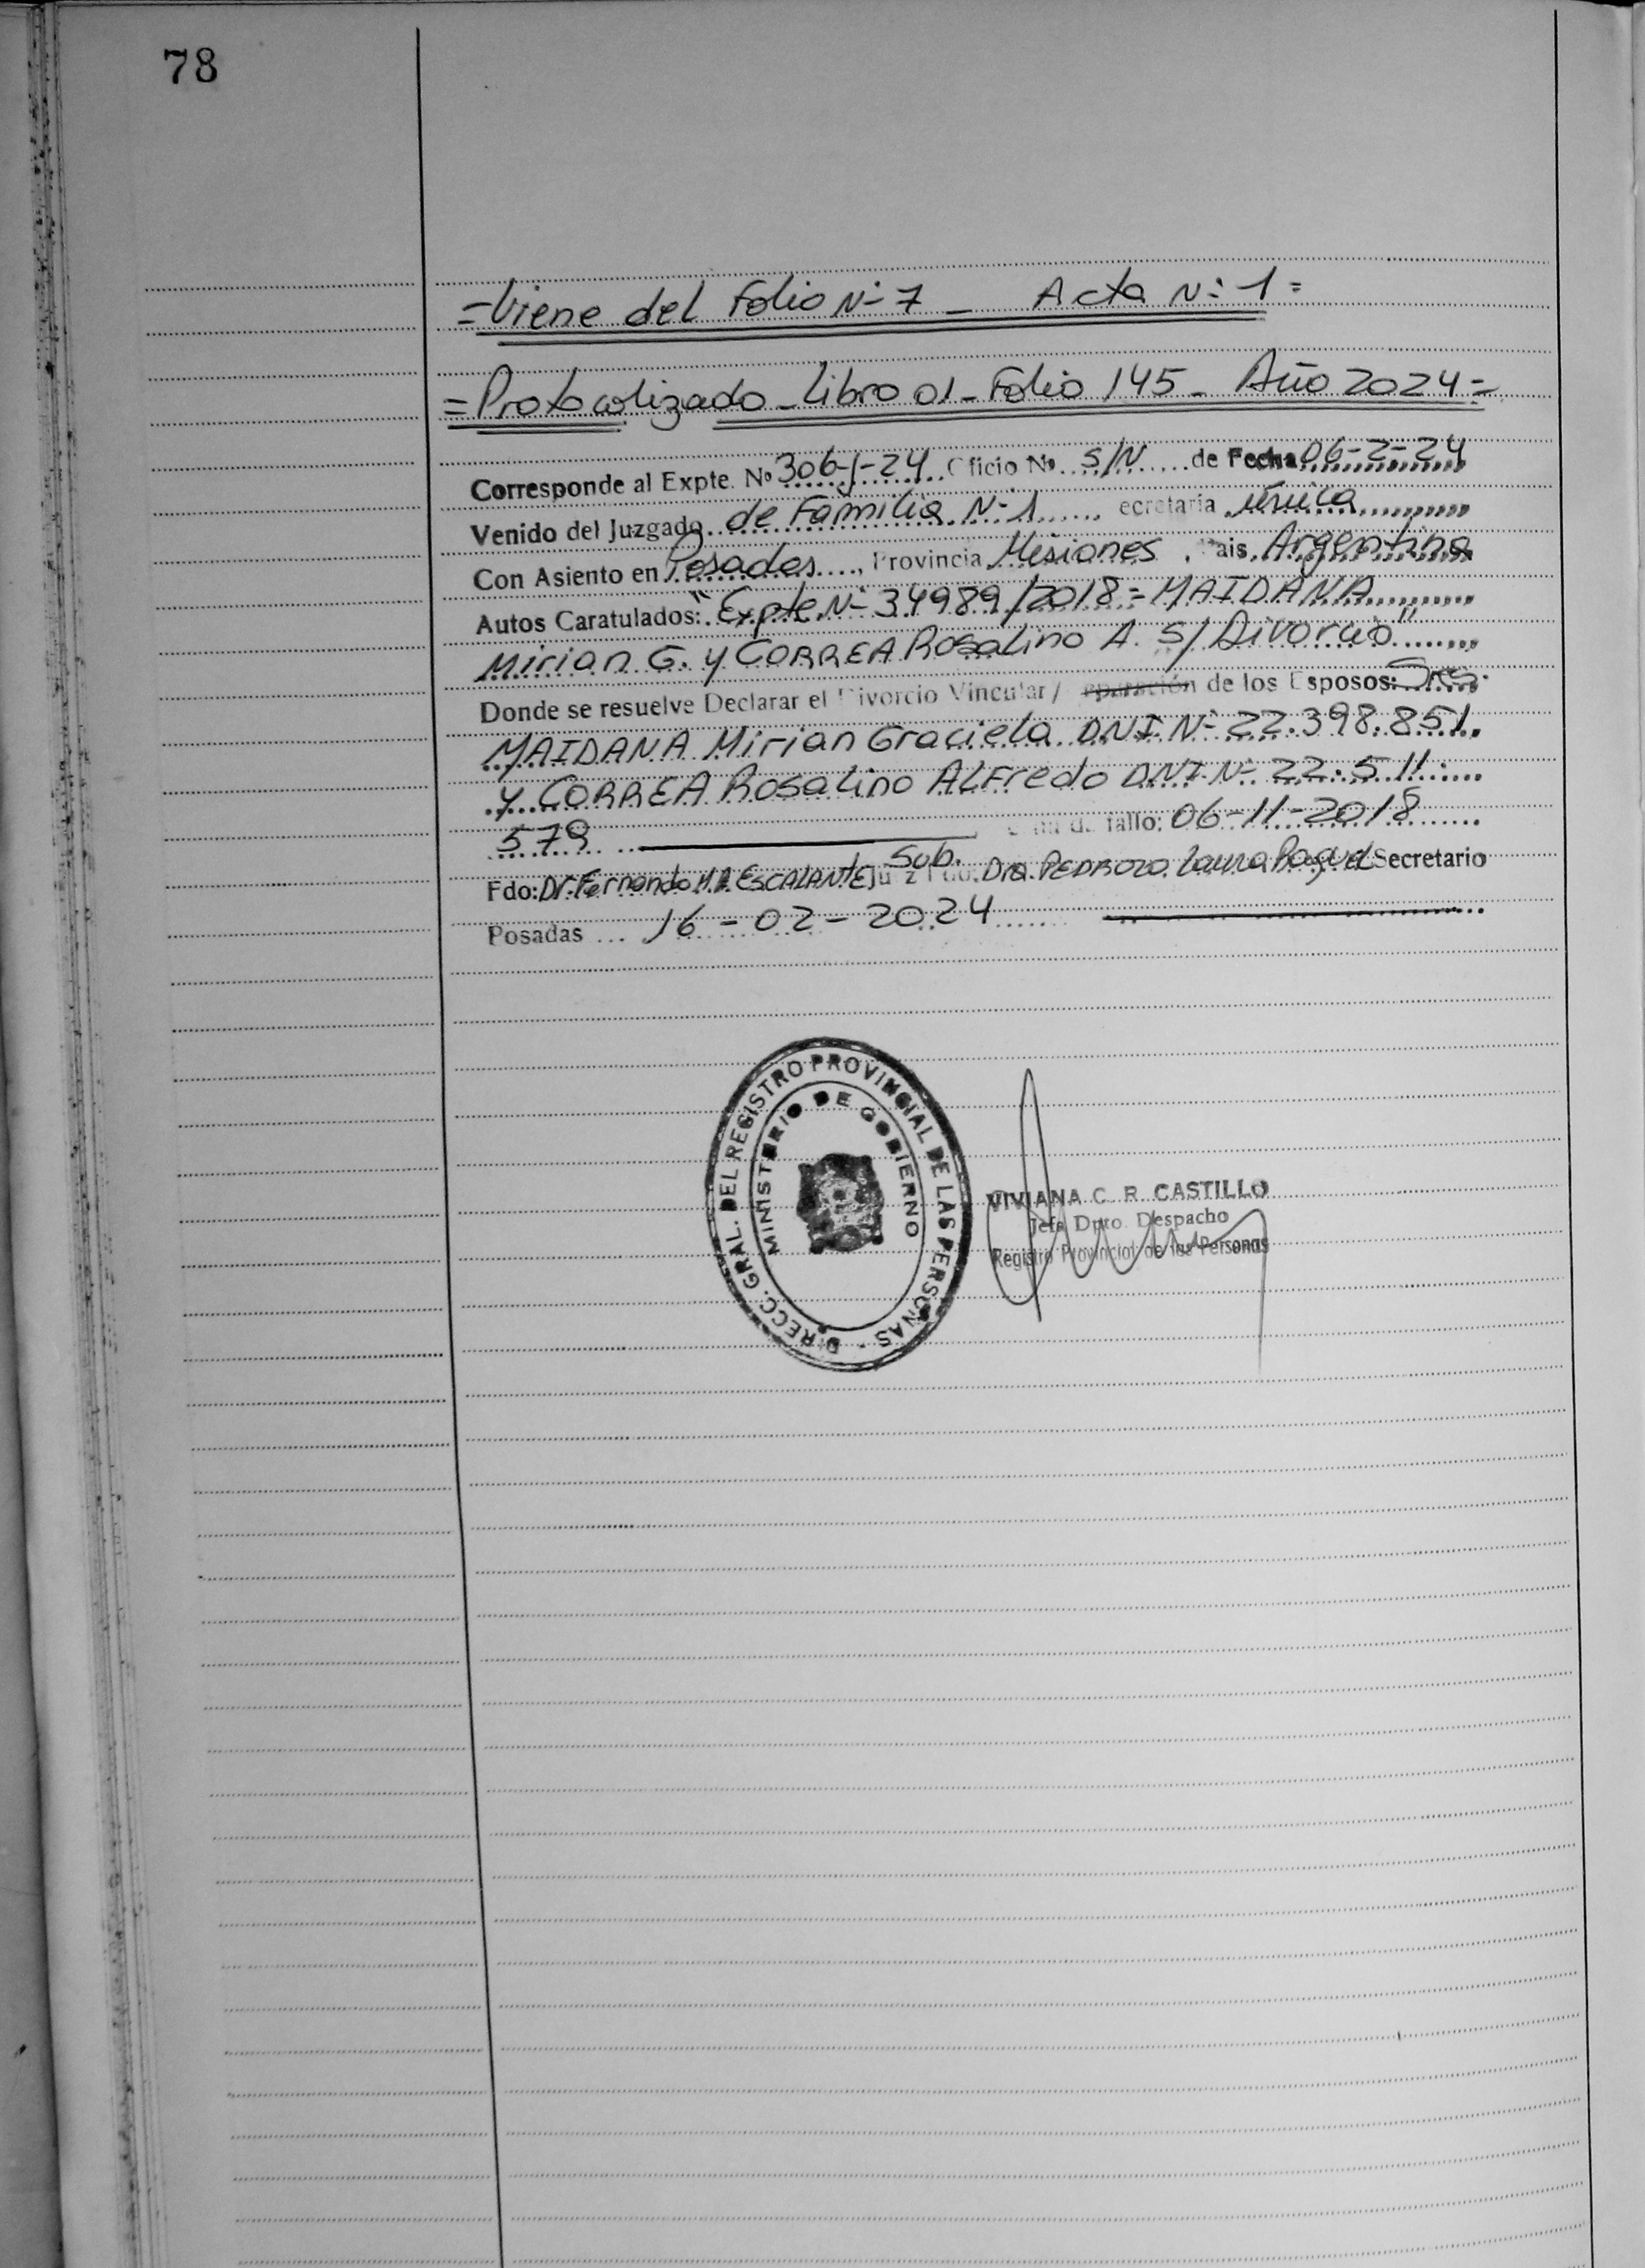 78
=Viene del Folio Nº 7 - Acta Nº 1=
=Protocolizado - Libro 01 - Folio 145 - Año 2024=
Corresponde al Expte. Nº 306-J-24 Oficio Nº S/N de Fecha 06-2-24
Venido del Juzgado de Familia Nº 1 ecretaria única
Con Asiento en Posadas, Provincia Misiones, Pais Argentina
Autos Caratulados: "Expte Nº 34989/2018 = MAIDANA
Mirian G. y CORREA Rosalino A. S/ Divorcio"
Donde se resuelve Declarar el Divorcio Vincular / eparación de los Esposos: Sres.
MAIDANA Mirian Graciela DNI Nº 22.398.851.
y CORREA Rosalino ALFredo DNI Nº 22.511.
579 fallo: 06-11-2018
Fdo: Dr. Fernando M. ESCALANTE Juez Sub. Fdo: Dra. PEDROZO Laura Raquel Secretario
Posadas 16-02-2024
DIRECC. GRAL. DEL REGISTRO PROVINCIAL DE LAS PERSONAS -
MINISTERIO DE GOBIERNO
VIVIANA C. R. CASTILLO
Jefa Dpto. Despacho
Registro Provincial de las Personas